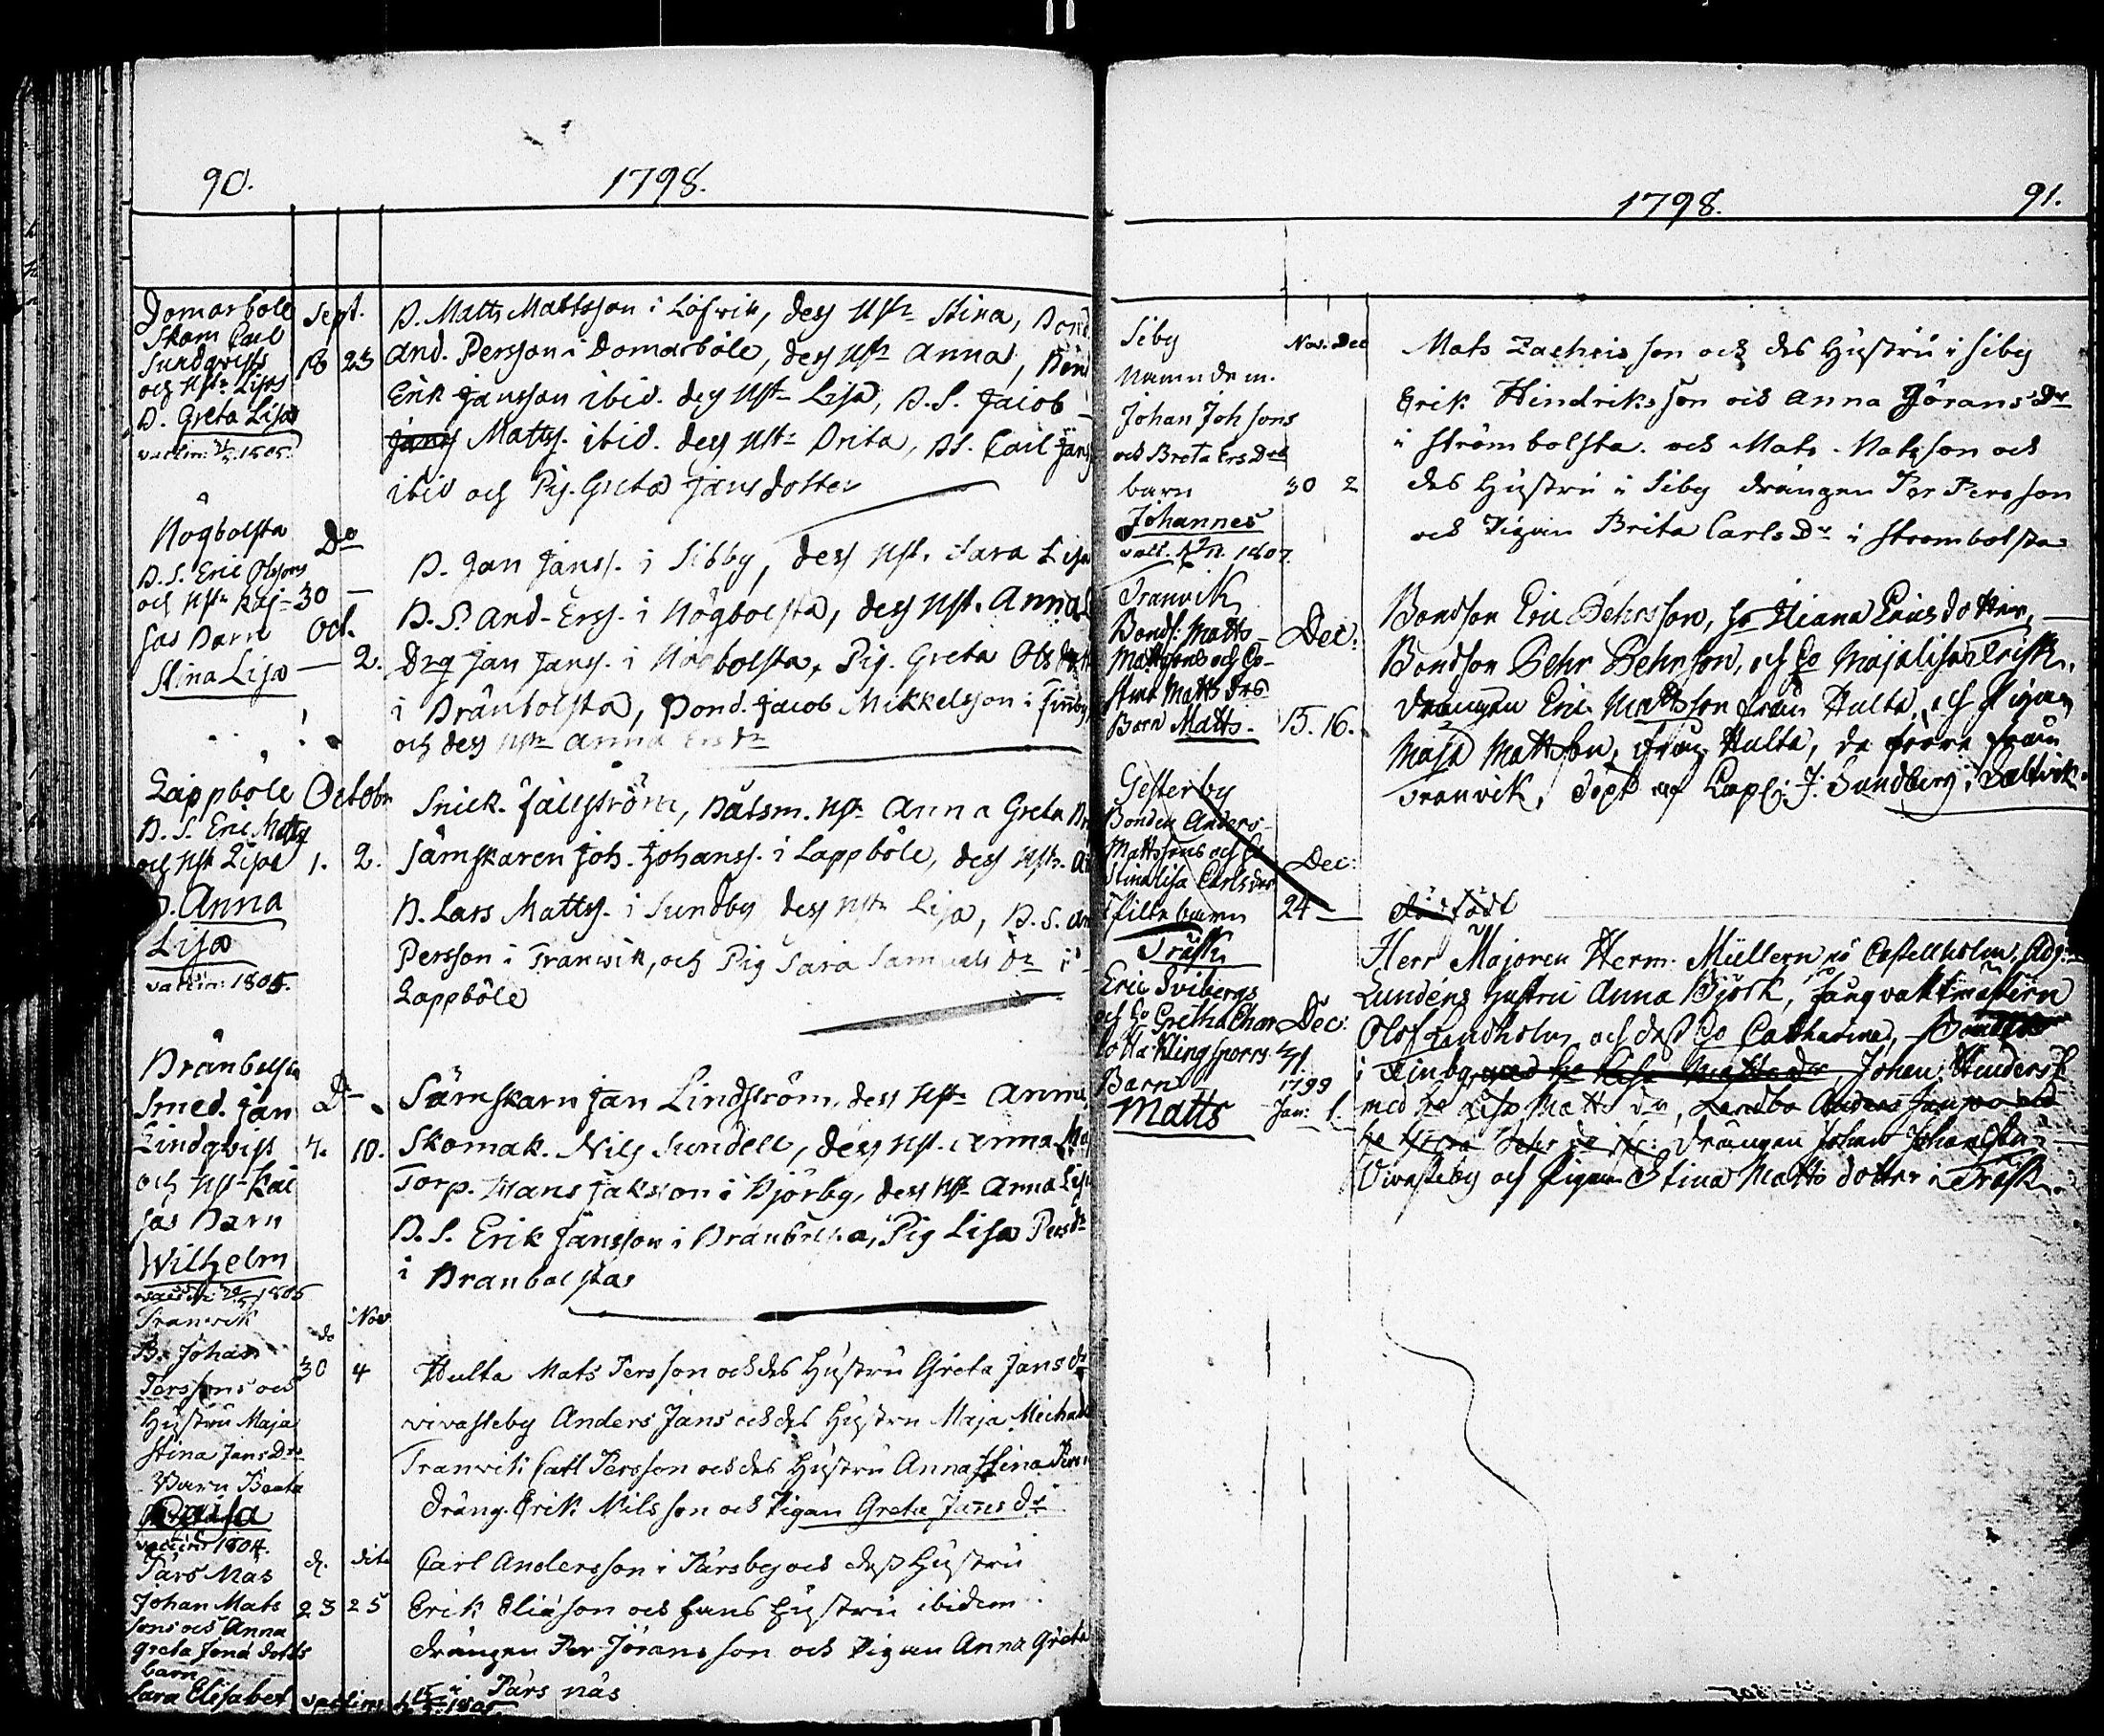 90.
1798.
Domarböle
Skom Carl
Sundqvists
och Hstr Lisas
D. Greta Lisa
vaccin: 1805.
Sept.
18 23
B. Matts Mattsson i Löfwik, dess Hstr Stina, Bond
And. Persson i Domarböle, dess Hstr Anna, Bond
Erik Jansson ibid. dess Hstr Lisa, B.S. Jacob
Janss Matts. ibid. dess Hstr Brita, BS. Carl Janss
ibid och Pig. Greta Jansdotter
Högbolsta
B.S. Eric Olssons
och Hstr Kaj-
sas Barn
Stina Lisa
Do
30 —
Oct.
— 2.
B. Jan Janss. i Sibby, dess Hstr Sara Lisa
B.S. And- Erss. i Högbolsta, dess Hstr. Anna
Drg Jan Janss. i Högbolsta, Pig. Greta Ols dott
i Bränbolsta, Bond. Jacob Mikkelsson i Finby,
och dess Hstr Anna Ers dr
Lappböle
B.S. Eric Matts
och Hstr Lisas
D. Anna
Lisa
vaccin: 1805.
Octobr
1. 2.
Snick. Fällström, Båtsm. Hstr Anna Greta
Sämskaren Joh. Johanss. i Lappböle, dess Hstr.
B. Lars Matts. i Sundby dess Hstr Lisa, B.S. And
Persson i Tranwik, och Pig Sara Samuels dr i
Lappböle
Bränbolsta
Smed. Jan
Lindqvist
och Hstr Kai
sas Barn
Wilhelm
1805
Do
4. 10.
Sämskarn Jan Lindström, dess Hstr Anna,
Skomak. Nils Sundell, dess Hst. Anna Maj
Torp. Hans Jakson i Björby, dess Hstr Anna Lisa
B.S. Erik Jansson i Bränbolsta, Pig Lisa Persdr
i Branbolsta
Tranvik
B. Johan
Perssons och
Hustru Maja
Stina JansDrs
Barn Beata
Caisa
vaccin: 1804.
do Nov
30 4
Hulta Mats Persson och des Hustru Greta Jansdr
vivasteby Anders Jans och des Hustru Maja Michaels
Tranvik Carl Persson och des Hustru Anna Stina Pers
Dräng. Erik Nilsson och Pigan Greta Jansdr
Pärs Näs
Johan Mats
sons och Anna
Greta Jona dotts
barn
Sara Elisabet
d. dito
23 25
Carl Andersson i Pärsby och dess Hustru
Erik Eliason och hans Hustru ibidem
drängen Per Jöransson och Pigan Anna Greta
i Pärs näs
vaccin: 1805
1798.
91.
Siby
Namndem.
Johan Joh sons
och Breta Ers Drs
barn
Johannes
1807.
Nov. Dec
30 2
Mats Zachrisson och des Hustru i Siby
Erik Hindriksson och Anna Görans Dr
i Strömbolsta. och Mats. Matsson och
des Hustru i Siby drängen Per Persson
och Pigan Brita Carls Dr i Strombolsta
Tranvik
Bonds: Matts
Mattssons och
Matts drs
Barn Matts.
Dec:
15. 16.
Bondson Eric Behrsson, ho Diana Ericsdotter,
Bondson Behr Behrsson, och ho Majalisa Träsk.
drangen Eric Mattsson från Hulta, och Pigan
Maja Mattsdr, ifrån Hulta, de förra från
Tranvik, döpt af Capl: J: Sundberg i Saltvik.
Gesterby
Bonden Anders
Mattssons och ho
Stinalisa Carlsdrs
Flickebarn
Dec:
24 —
dödfödt
Träsk
Eric Tvibergs
och ho Gretha Char
lotta Klingsporrs
Barn
Matts
Dec:
31
1799
Jan: 1.
Herr Majoren Herm. Müllern på Castellholm, Adj:
Lundéns hustru Anna Björk, fångvaktmästern
Olof Landholm och dess ho Catharina, Bonden
i Finby med ho Lisa Mattsdr Johan Hinders
med ho Lisa Matts dr, Landbo Anders Jansson
drängen Johan Johansson
Vivasteby och Pigan Stina Mattsdotter i Träsk.